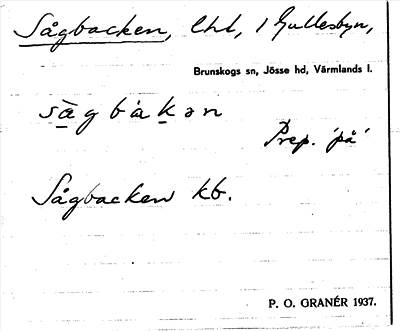 Sågbacken, lht, i Gullesbyn,
Brunskogs sn, Jösse hd, Värmlands l.
sàgbakən
Prep. 'på'
Sågbacken kb.
P. O. GRANÉR 1937.